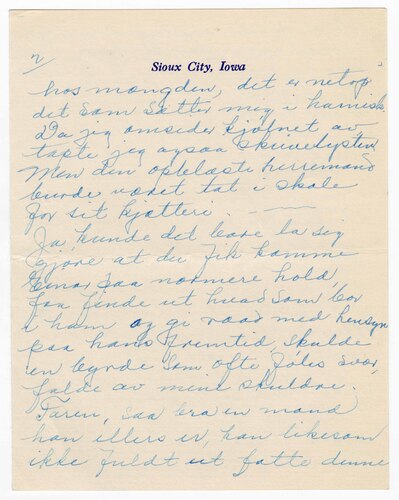 2/
Sioux City, Iowa
hos mængden, det er netop
det som sætter mig i harnisk
Da jeg omsider kjølnet av,
tapte jeg ogsaa skrivelysten
Men den opblæste herremand
burde været tat i skole
for sit kjætteri.
Ja kunde det bare la sig
gjøre at du fik komme
Einar paa nærmere hold,
faa finde ut hvad som bor
i ham og gi raad med hensyn
paa hans fremtid, skulde
en byrde som ofte føles svær,
falde av mine skuldre.
Faren, saa bra en mand
han ellers er, kan likesom
ikke fuldt ut fatte denne